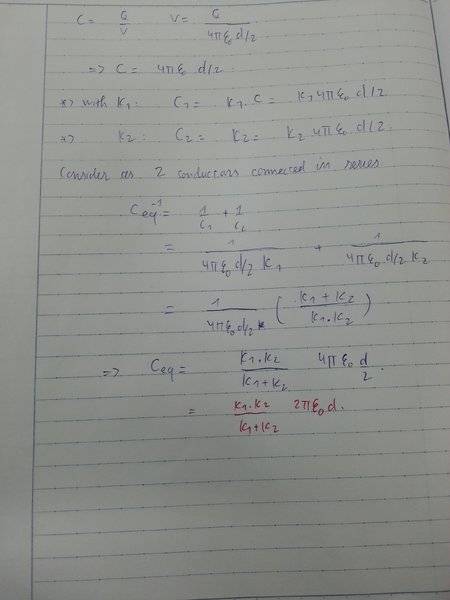 C = Q/V V = Q/4πε₀ d/2
=> C = 4πε₀ d/2
*> with K₁: C₁ = K₁. C = K₁ 4πε₀ d/2
*> K₂: C₂ = K₂ = K₂ 4πε₀ d/2
Consider as 2 conductors connected in series
Ceq⁻¹ = 1/C₁ + 1/C₂
= 1/4πε₀ d/2 K₁ + 1/4πε₀ d/2 K₂
= 1/4πε₀ d/2 ( K₁ + K₂ / K₁.K₂ )
=> Ceq = K₁.K₂/K₁+K₂ 4πε₀ d/2.
= K₁.K₂/K₁+K₂ 2πε₀ d.